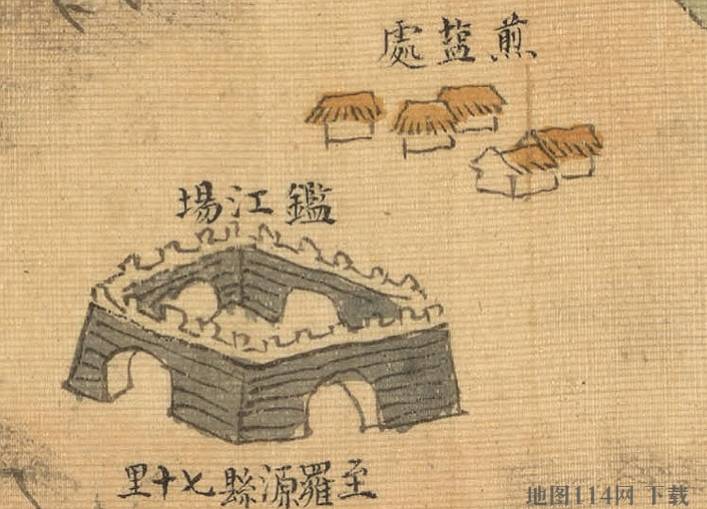 煎盐處
鑑江場
至羅源縣七十里
地图114网 下载